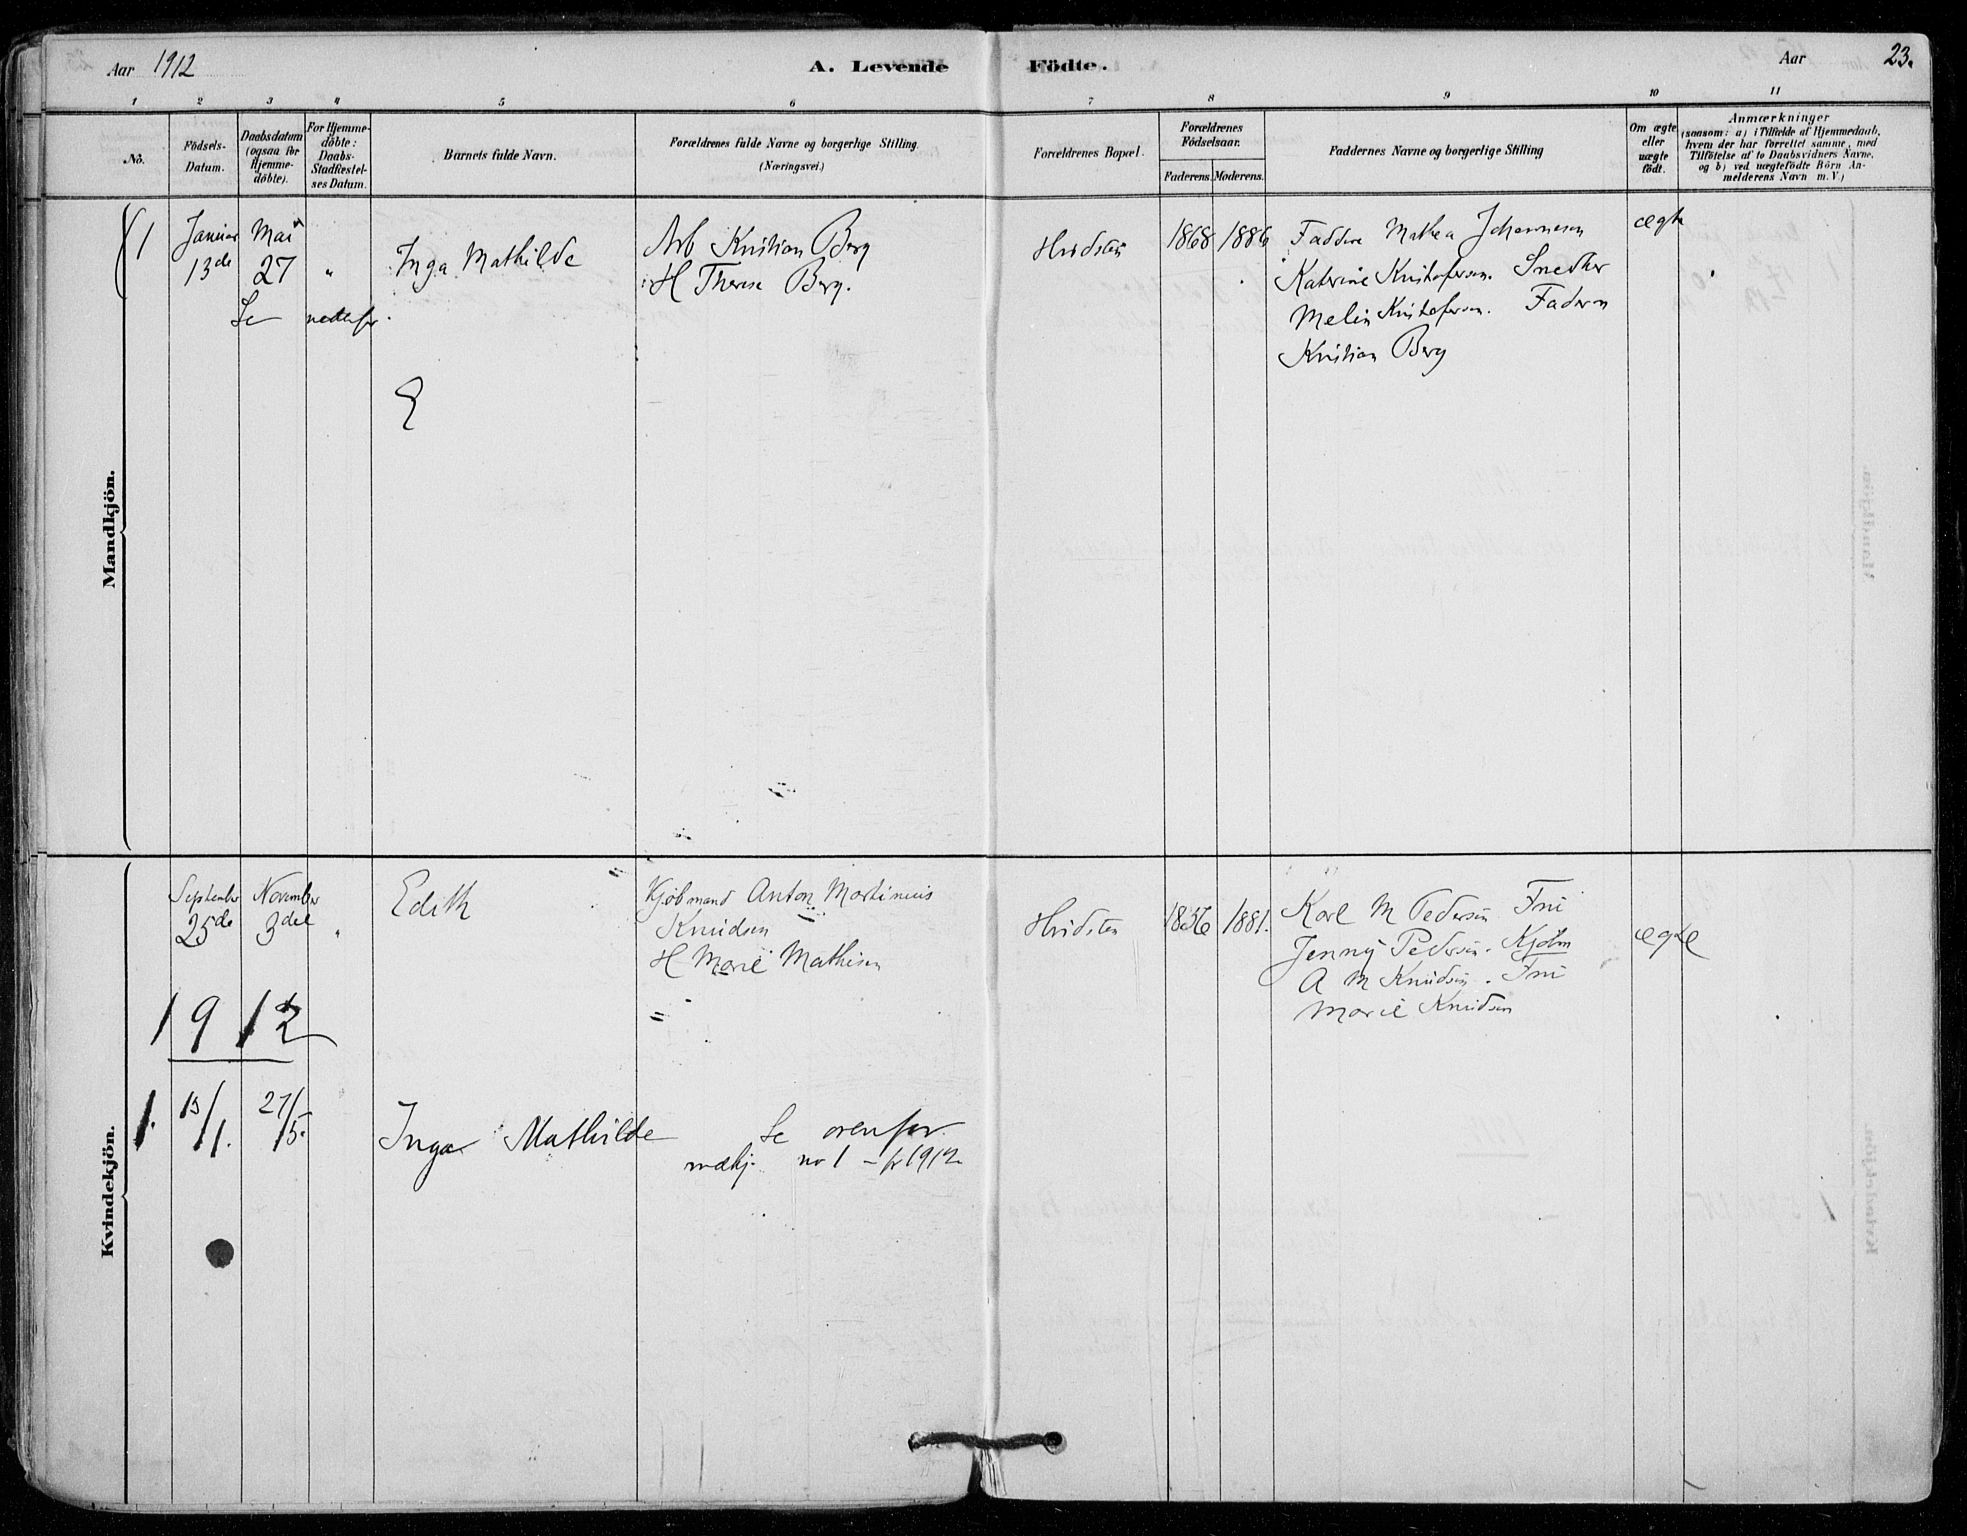 Aar 1912
A. Levende Födte.
Aar
23.
1 2 3 4 5 6 7 8 9 10 11
No.
Födsels-Datum.
Daabsdatum (ogsaa for Hjemmedöbte).
For Hjemmedöbte: Daabs-Stadfæstelses Datum.
Barnets fulde Navn.
Forældrenes fulde Navne og borgerlige Stilling.
(Næringsvei.)
Forældrenes Bopæl.
Forældrenes Födselsaar.
Faderens. Moderens.
Faddernes Navne og borgerlige Stilling
Om ægte eller uægte födt.
Anmærkninger
(saasom: a) i Tilfælde af Hjemmedaab,
hvem der har forrettet samme, med
Tilföielse af to Daabsvidners Navne,
og b) ved uægtefödte Börn An-
melderens Navn m. V.)
Mandkjön.
1 Januar 13de Mai 27 "
Se nedenfor.
Inga Mathilde
Arb Kristian Berg
H Therese Berg.
Hvidsten
1868 1886
Faddere Mathea Johannesen
Katerine Kristofersen. Snedker
Melin Kristofersen. Faderen
Kristian Berg
ægte
E
Kvindekjön.
September 25de November 3die "
Edith
Kjøbmand Anton Martinius
Knudsen
H Marie Mathisen
=
Hvidsten
1836 1881.
Karl M Pedersen Fru
Jenny Pedersen. Kjøbm
A M Knudsen. Fru
Marie Knudsen
ægte
1912
1. 13/1. 27/5.
Inga Mathilde
Se ovenfor
mdkj. no 1 – fr 1912